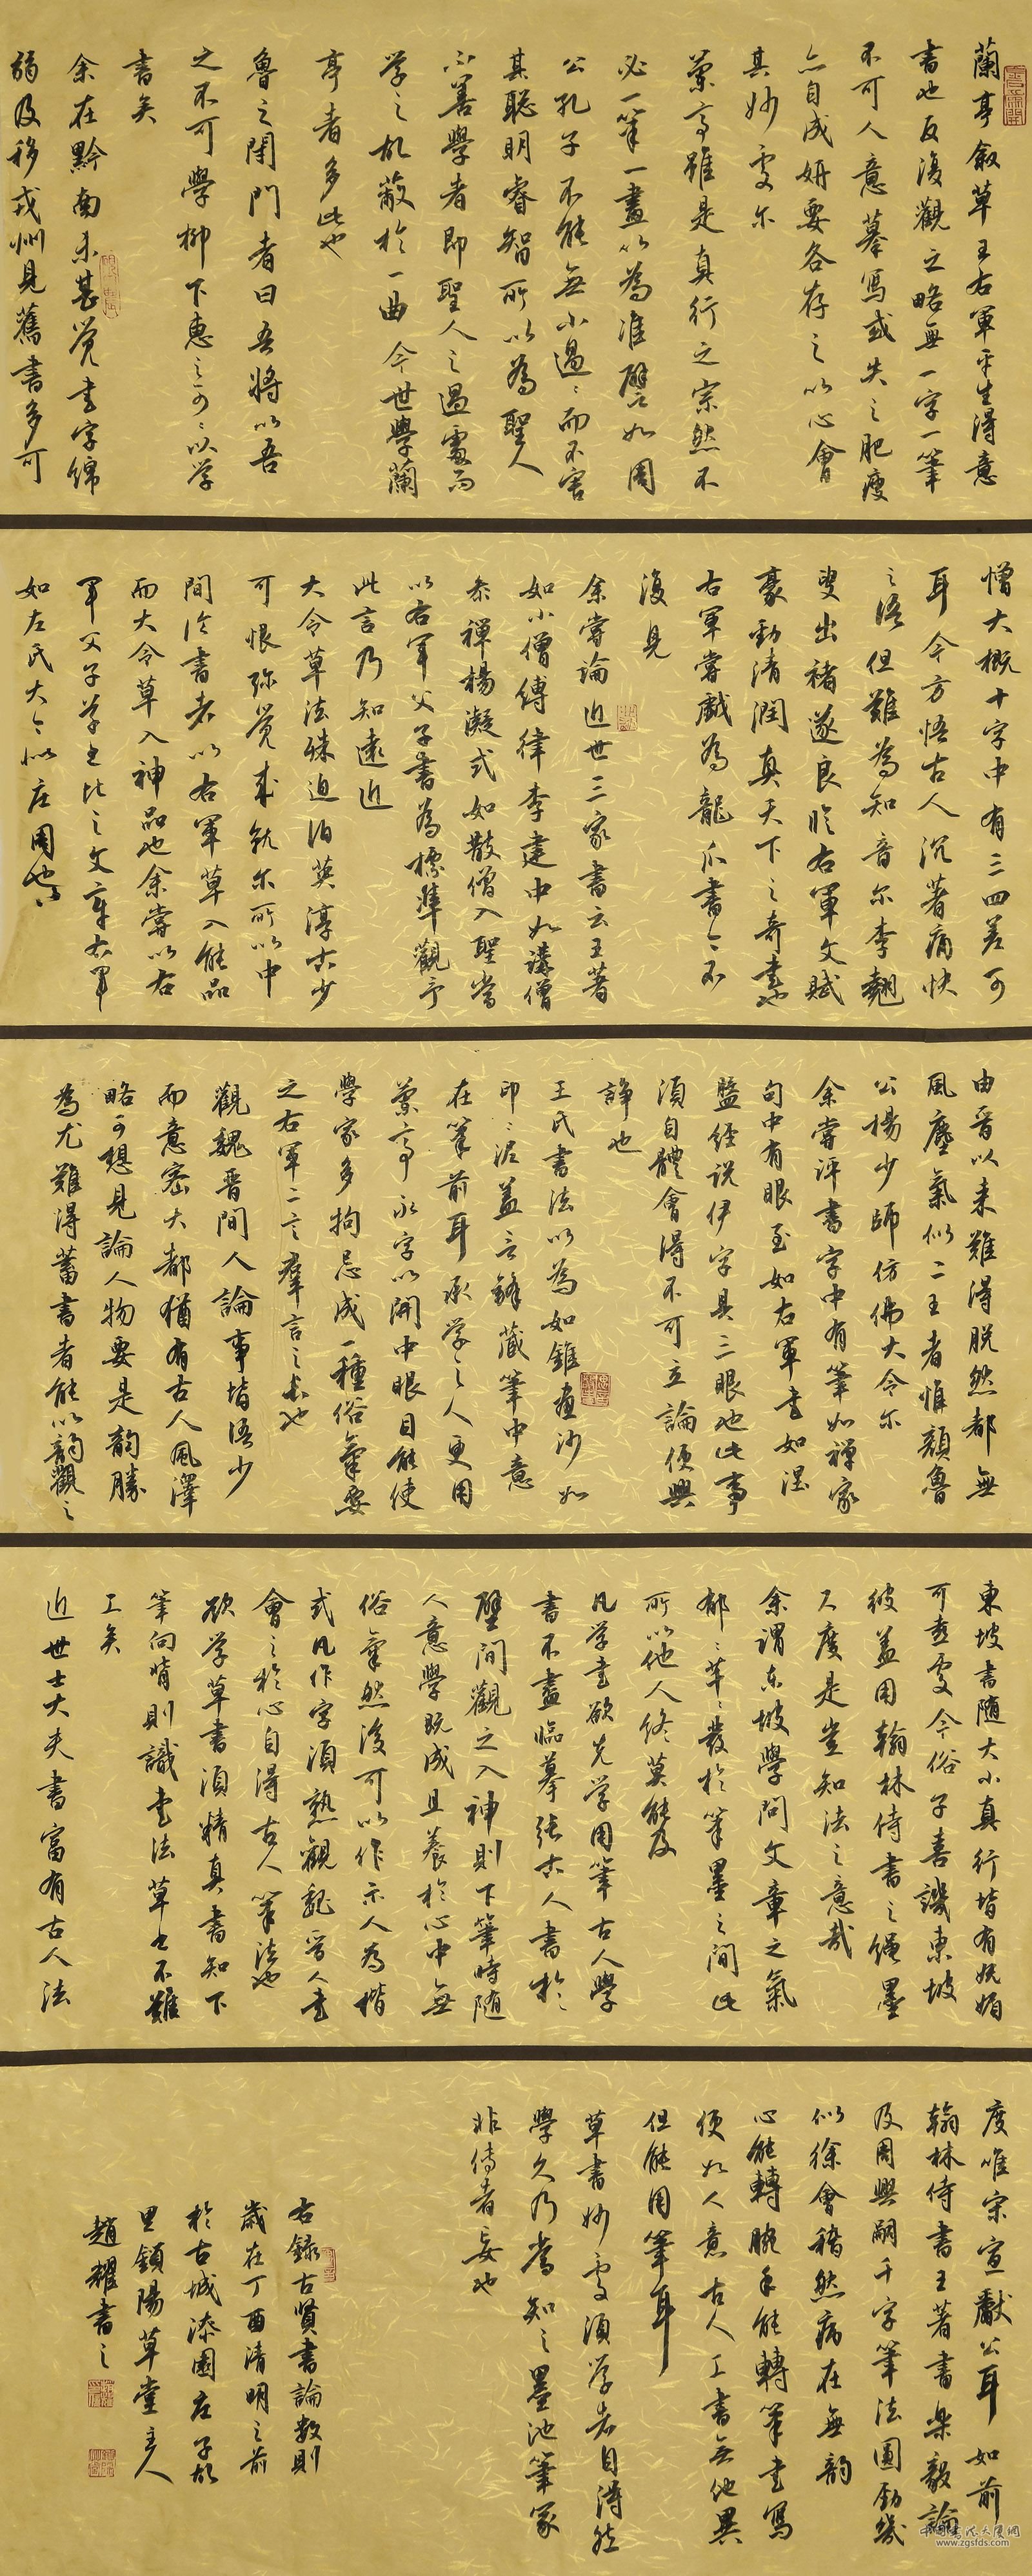 蘭亭敘草王右軍平生得意
書也反復觀之略無一字一筆
不可人意摹寫或失之肥瘦
亦自成妍要各存之以心會
其妙處尔
蘭亭雖是真行之宗然不
必一筆一畫以為准譬如周
公孔子不能無小過過而不害
其聰明睿智所以為聖人
不善學者即聖人之過處而
学之故蔽於一曲今世學蘭
亭者多此也
魯之閉門者曰吾將以吾
之不可學柳下惠之可可以学
書矣
余在黔南未甚覺書字綿
弱及移戎州見舊書多可
憎大概十字中有三四差可
耳今方悟古人沉著痛快
之語但難為知音尔李翹
叟出褚遂良臨右軍文賦
豪勁清潤真天下之奇書也
右軍嘗戲為龍爪書今不
復見
余嘗論近世三家書云王著
如小僧縛律李建中如講僧
參禪楊凝式如散僧入聖當
以右軍父子書為標準觀予
此言乃知遠近
大令草法殊迫伯英淳古少
可恨弥覺成就尔所以中
間論書者以右軍草入能品
而大令草入神品也余嘗以右
軍父子草書比之文章右軍
如左氏大令似庄周也
由晉以来難得脱然都無
風塵氣似二王者惟顏魯
公楊少師仿佛大令尔
余嘗評書字中有筆如禪家
句中有眼至如右軍書如涅
盤經说伊字具三眼也此事
須自體會得不可立論便興
諍也
王氏書法以為如錐畫沙如
印印泥盖言鋒藏筆中意
在筆前耳承学之人更用
蘭亭永字以開中眼目能使
學家多拘忌成一種俗氣要
之右軍二言群言之長也
觀魏晋間人論事皆語少
而意密大都猶有古人風澤
略可想見論人物要是韵勝
為尤難得蓄書者能以韵觀之
東坡書随大小真行皆有妩媚
可喜處今俗子喜譏東坡
彼盖用翰林侍書之绳墨
尺度是豈知法之意哉
余謂东坡學問文章之氣
郁郁芊芊發於筆墨之間此
所以他人终莫能及
凡学書欲先学用筆古人學
書不盡臨摹張古人書於
壁間觀之入神則下筆時随
人意學既成且養於心中無
俗氣然後可以作示人為楷
式凡作字須熟觀魏晋人書
會之於心自得古人筆法也
欲学草書須精真書知下
筆向背則識書法草書不難
工矣
近世士大夫書富有古人法
度唯宋宣獻公耳如前
翰林侍書王著書樂毅論
及周興嗣千字筆法圓勁幾
似徐會稽然病在無韵
心能轉腕手能轉筆書寫
便如人意古人工書無他異
但能用筆耳
草書妙處須学者自得然
學久乃當知之墨池筆冢
非傳者妄也
右錄古賢書論数則
歲在丁酉清明之前
於古城漆園庄子故
里鎖陽草堂主人
趙耀書之
中国书法大厦网
www.zgsfds.com